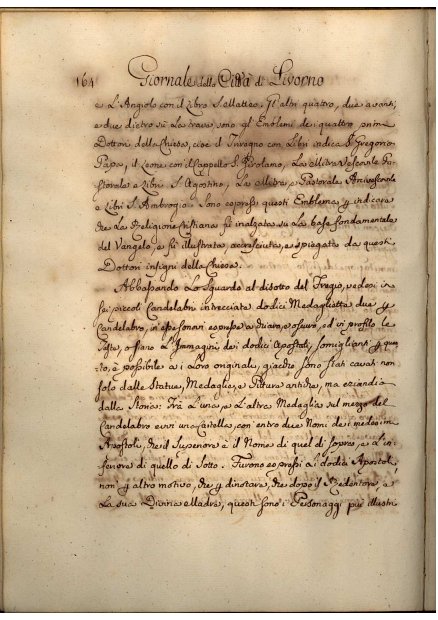 164 Giornale della Città di Livorno
e L'Angiolo con il Libro S. Matteo: Gl'altri quattro, due avanti,
e due dietro sù La trave, sono gl'Emblemi de i quattro primi
Dottori della Chiesa, cioè il con Libri indica S. Gregorio
Papa, il Leone con il Cappello S. Girolamo, La Mitra Vescovile Pa-
storale e Libri S. Agostino, La Mitra, e Pastorale Arcivescovile
e Libri S. Ambrogio. Sono espressi questi Emblemi p indicare
che La Religione Cristiana fù inalzata sù La base fondamentale
del Vangelo, e fù illustrata accresciuta, e spiegata da questi
Dottori insigni della Chiesa.
Abbassando Lo Sguardo al disotto del Fregio, vedesi in
sei piccoli Candelabri intrecciate dodici Medagliette due p
Candelabro, in esse sonovi espresse a chiaro, e oscuro, ed in profilo le
Teste, ossiano L'Immagini dei dodici Apostoli, somiglianti p quan-
to, è possibile a i Loro originali, giacchè sono stati cavati non
solo dalle Statue, Medaglie, e Pitture antiche, ma eziandio
dalla Storia: Frà L'una, e L'altra Medaglia sul mezzo del
Candelabro evvi una Cartella, con entro due Nomi de i medesimi
Apostoli, che il Superiore è il Nome di quel di sopra, e L'in-
feriore di quello di Sotto. Furono espressi a i dodici Apostoli,
non p altro motivo, che p dinotare, che dopo il Redentore, e
La sua Divina Madre, questi sono i Personaggi più illustri